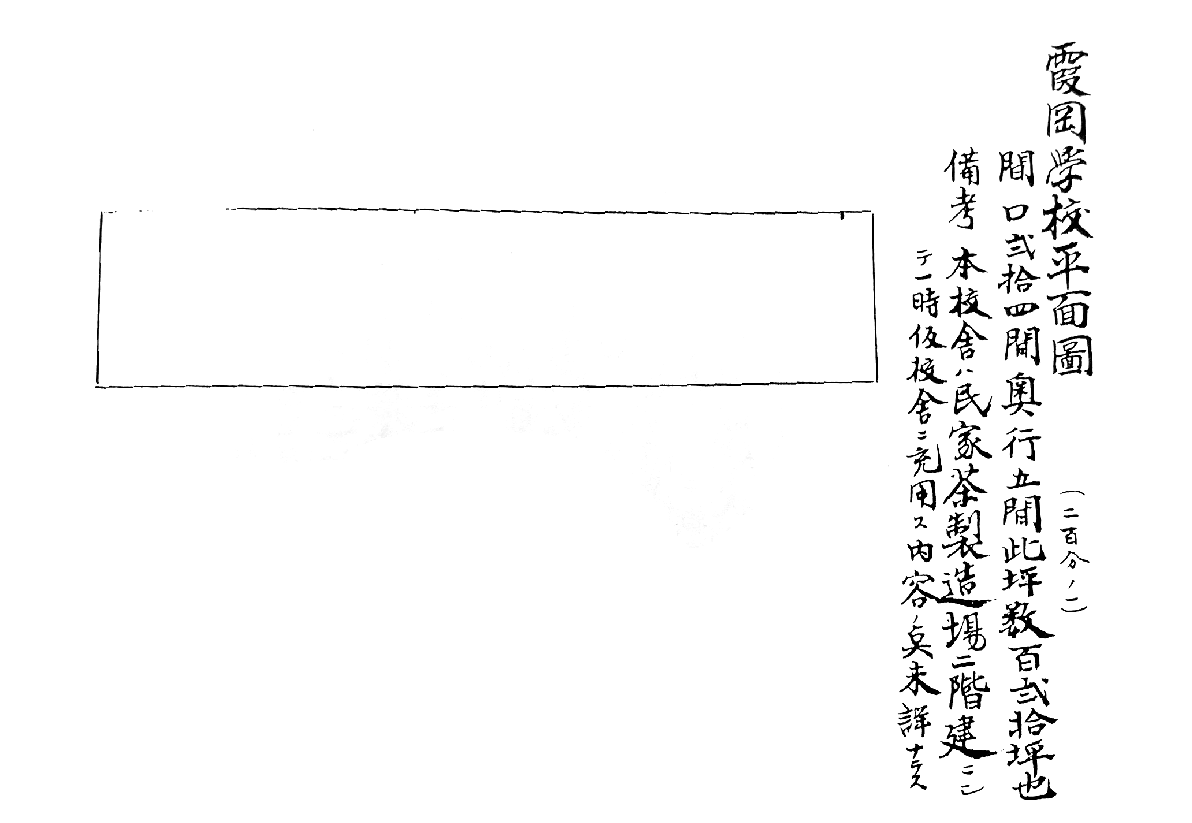 霞岡学校平面圖
（二百分ノ一）
間口弐拾四間奥行五間此坪数百弐拾坪也
備考 本校舎ハ民家茶製造場二階建ニシ
テ一時仮校舎ニ充用ス内容ノ奌未詳ナラス